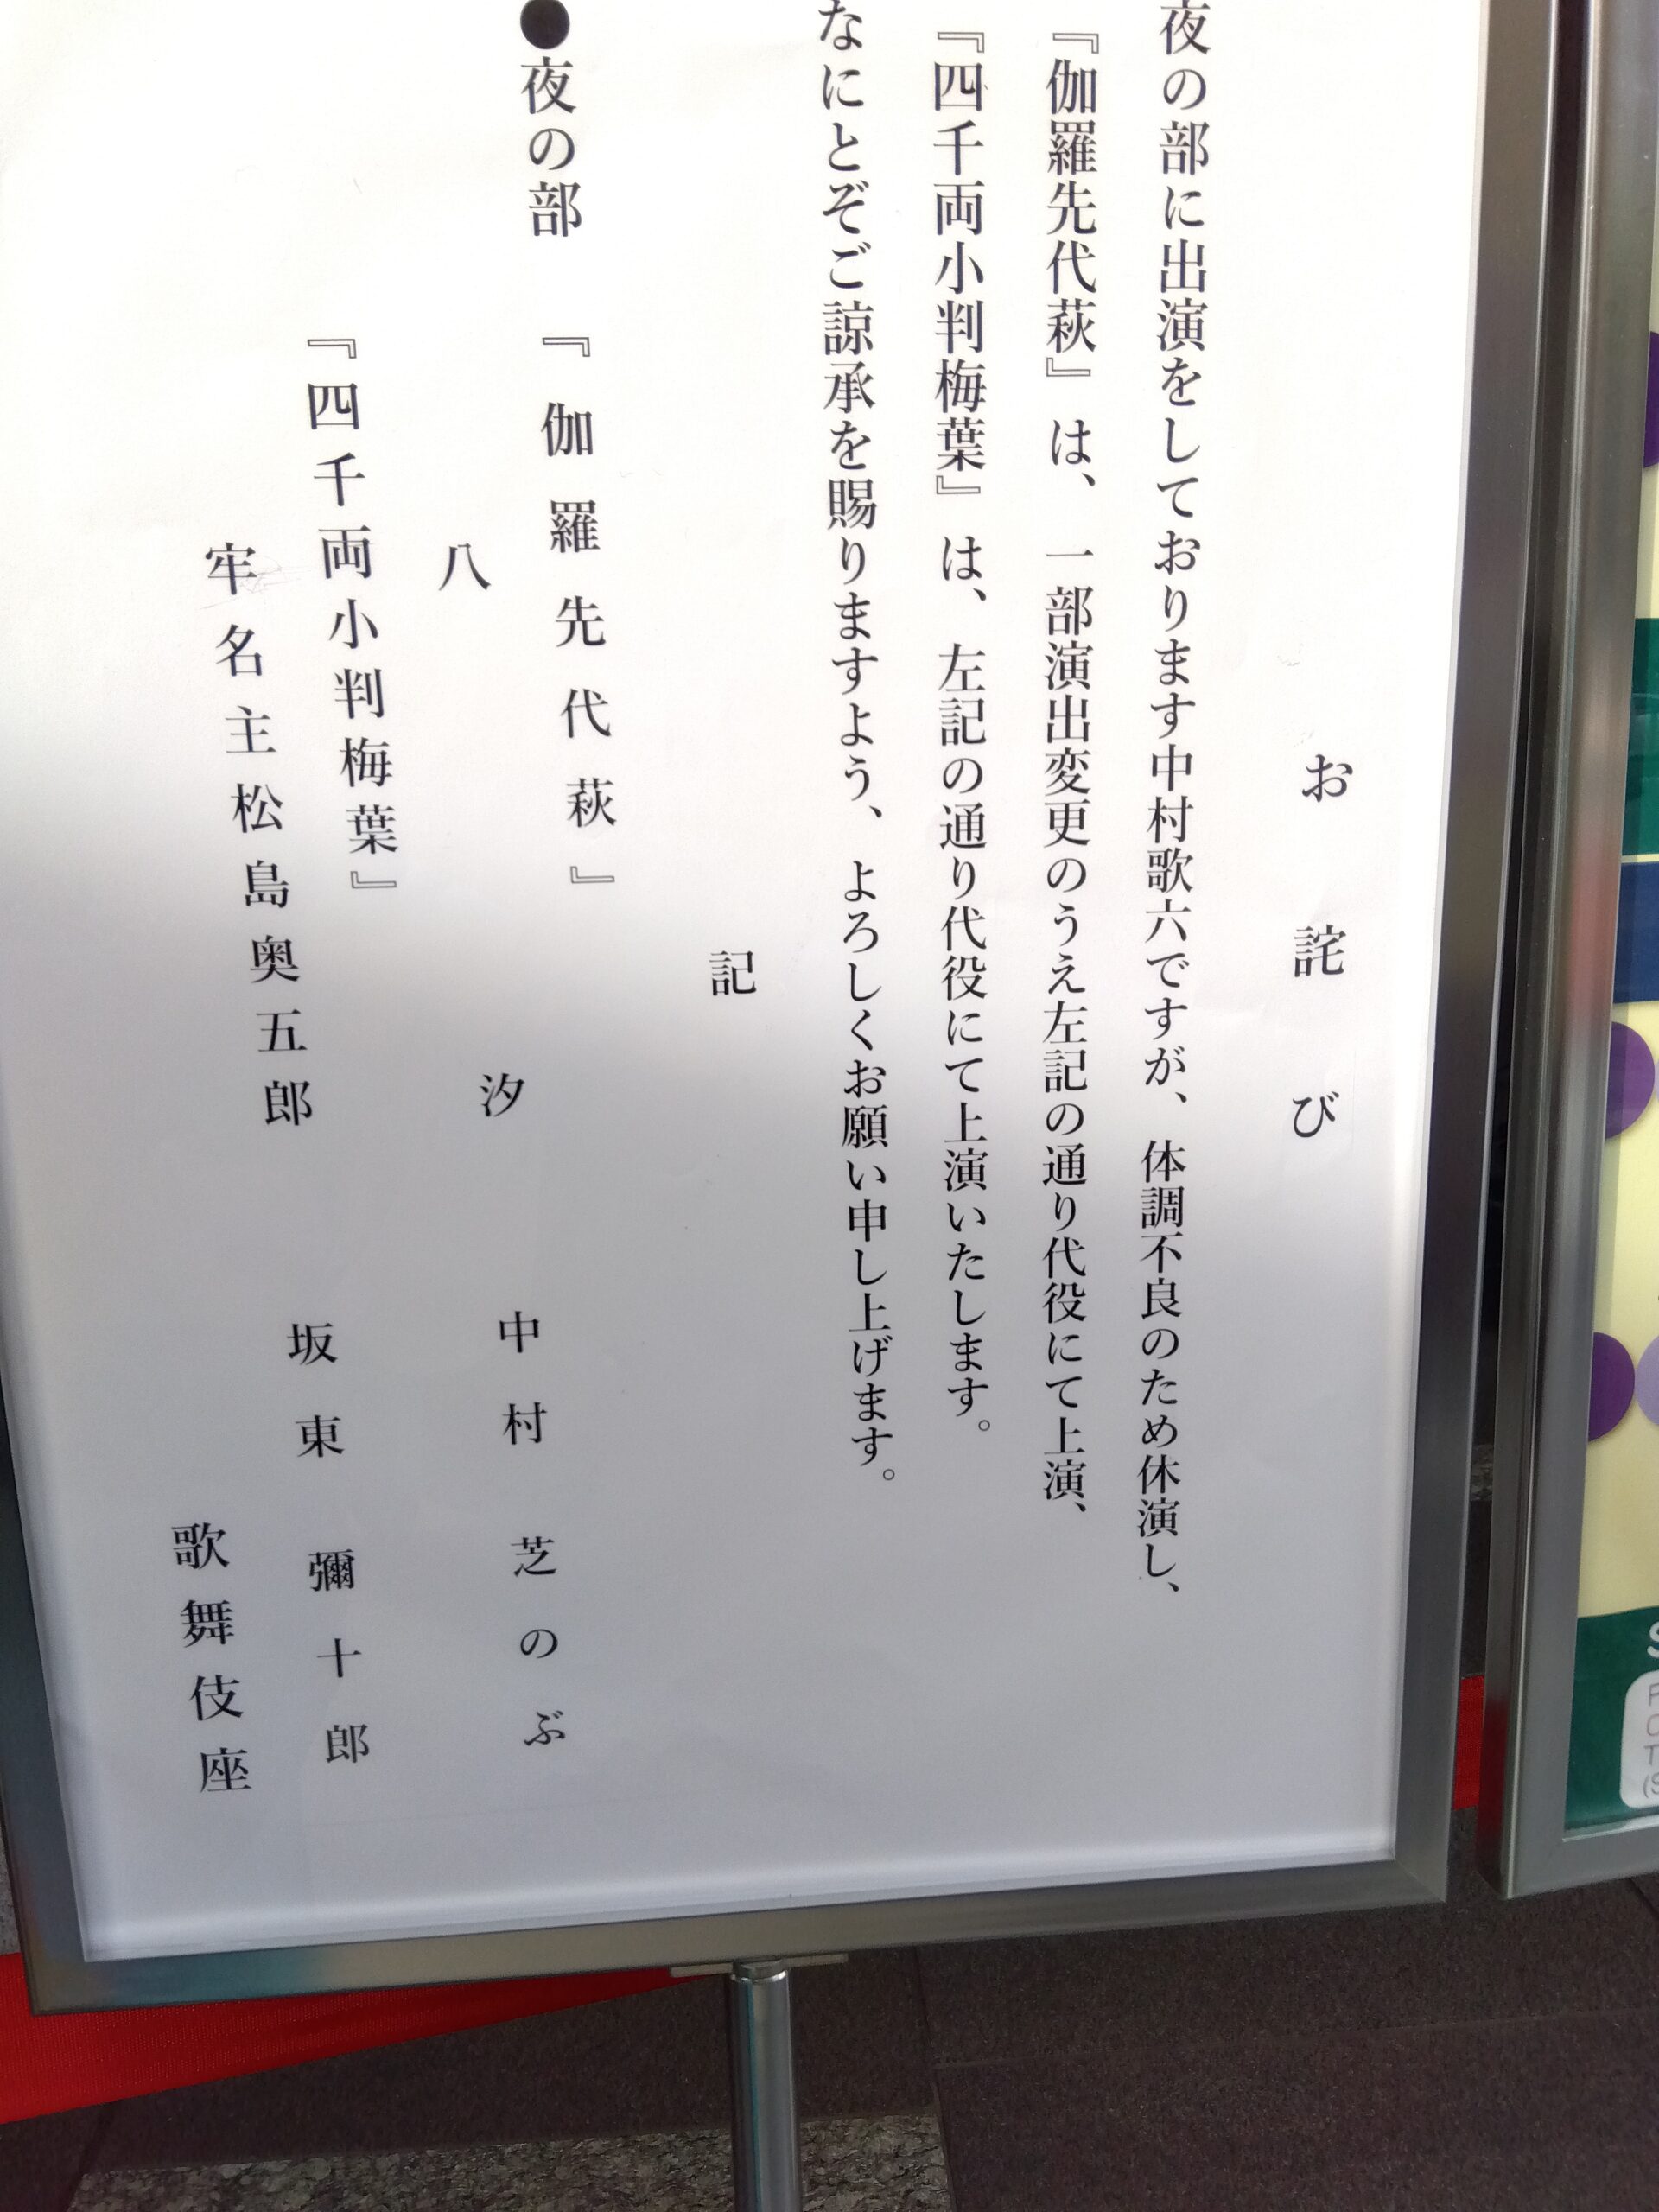 お詫び
夜の部に出演をしております中村歌六ですが、体調不良のため休演し、
『伽羅先代萩』は、一部演出変更のうえ左記の通り代役にて上演、
『四千両小判梅葉』は、左記の通り代役にて上演いたします。
なにとぞご諒承を賜りますよう、よろしくお願い申し上げます。
記
●夜の部 『伽羅先代萩』
八汐 中村芝のぶ
『四千両小判梅葉』
牢名主松島奥五郎 坂東彌十郎
歌舞伎座